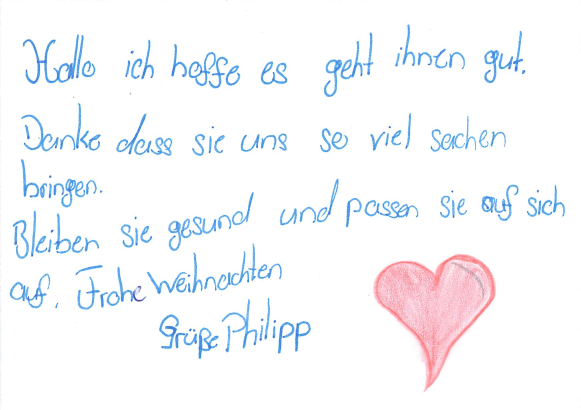 Hallo ich hoffe es geht ihnen gut.
Danke dass sie uns so viel sachen
bringen.
Bleiben sie gesund und passen sie auf sich
auf. Frohe Weihnachten
Grüße Philipp